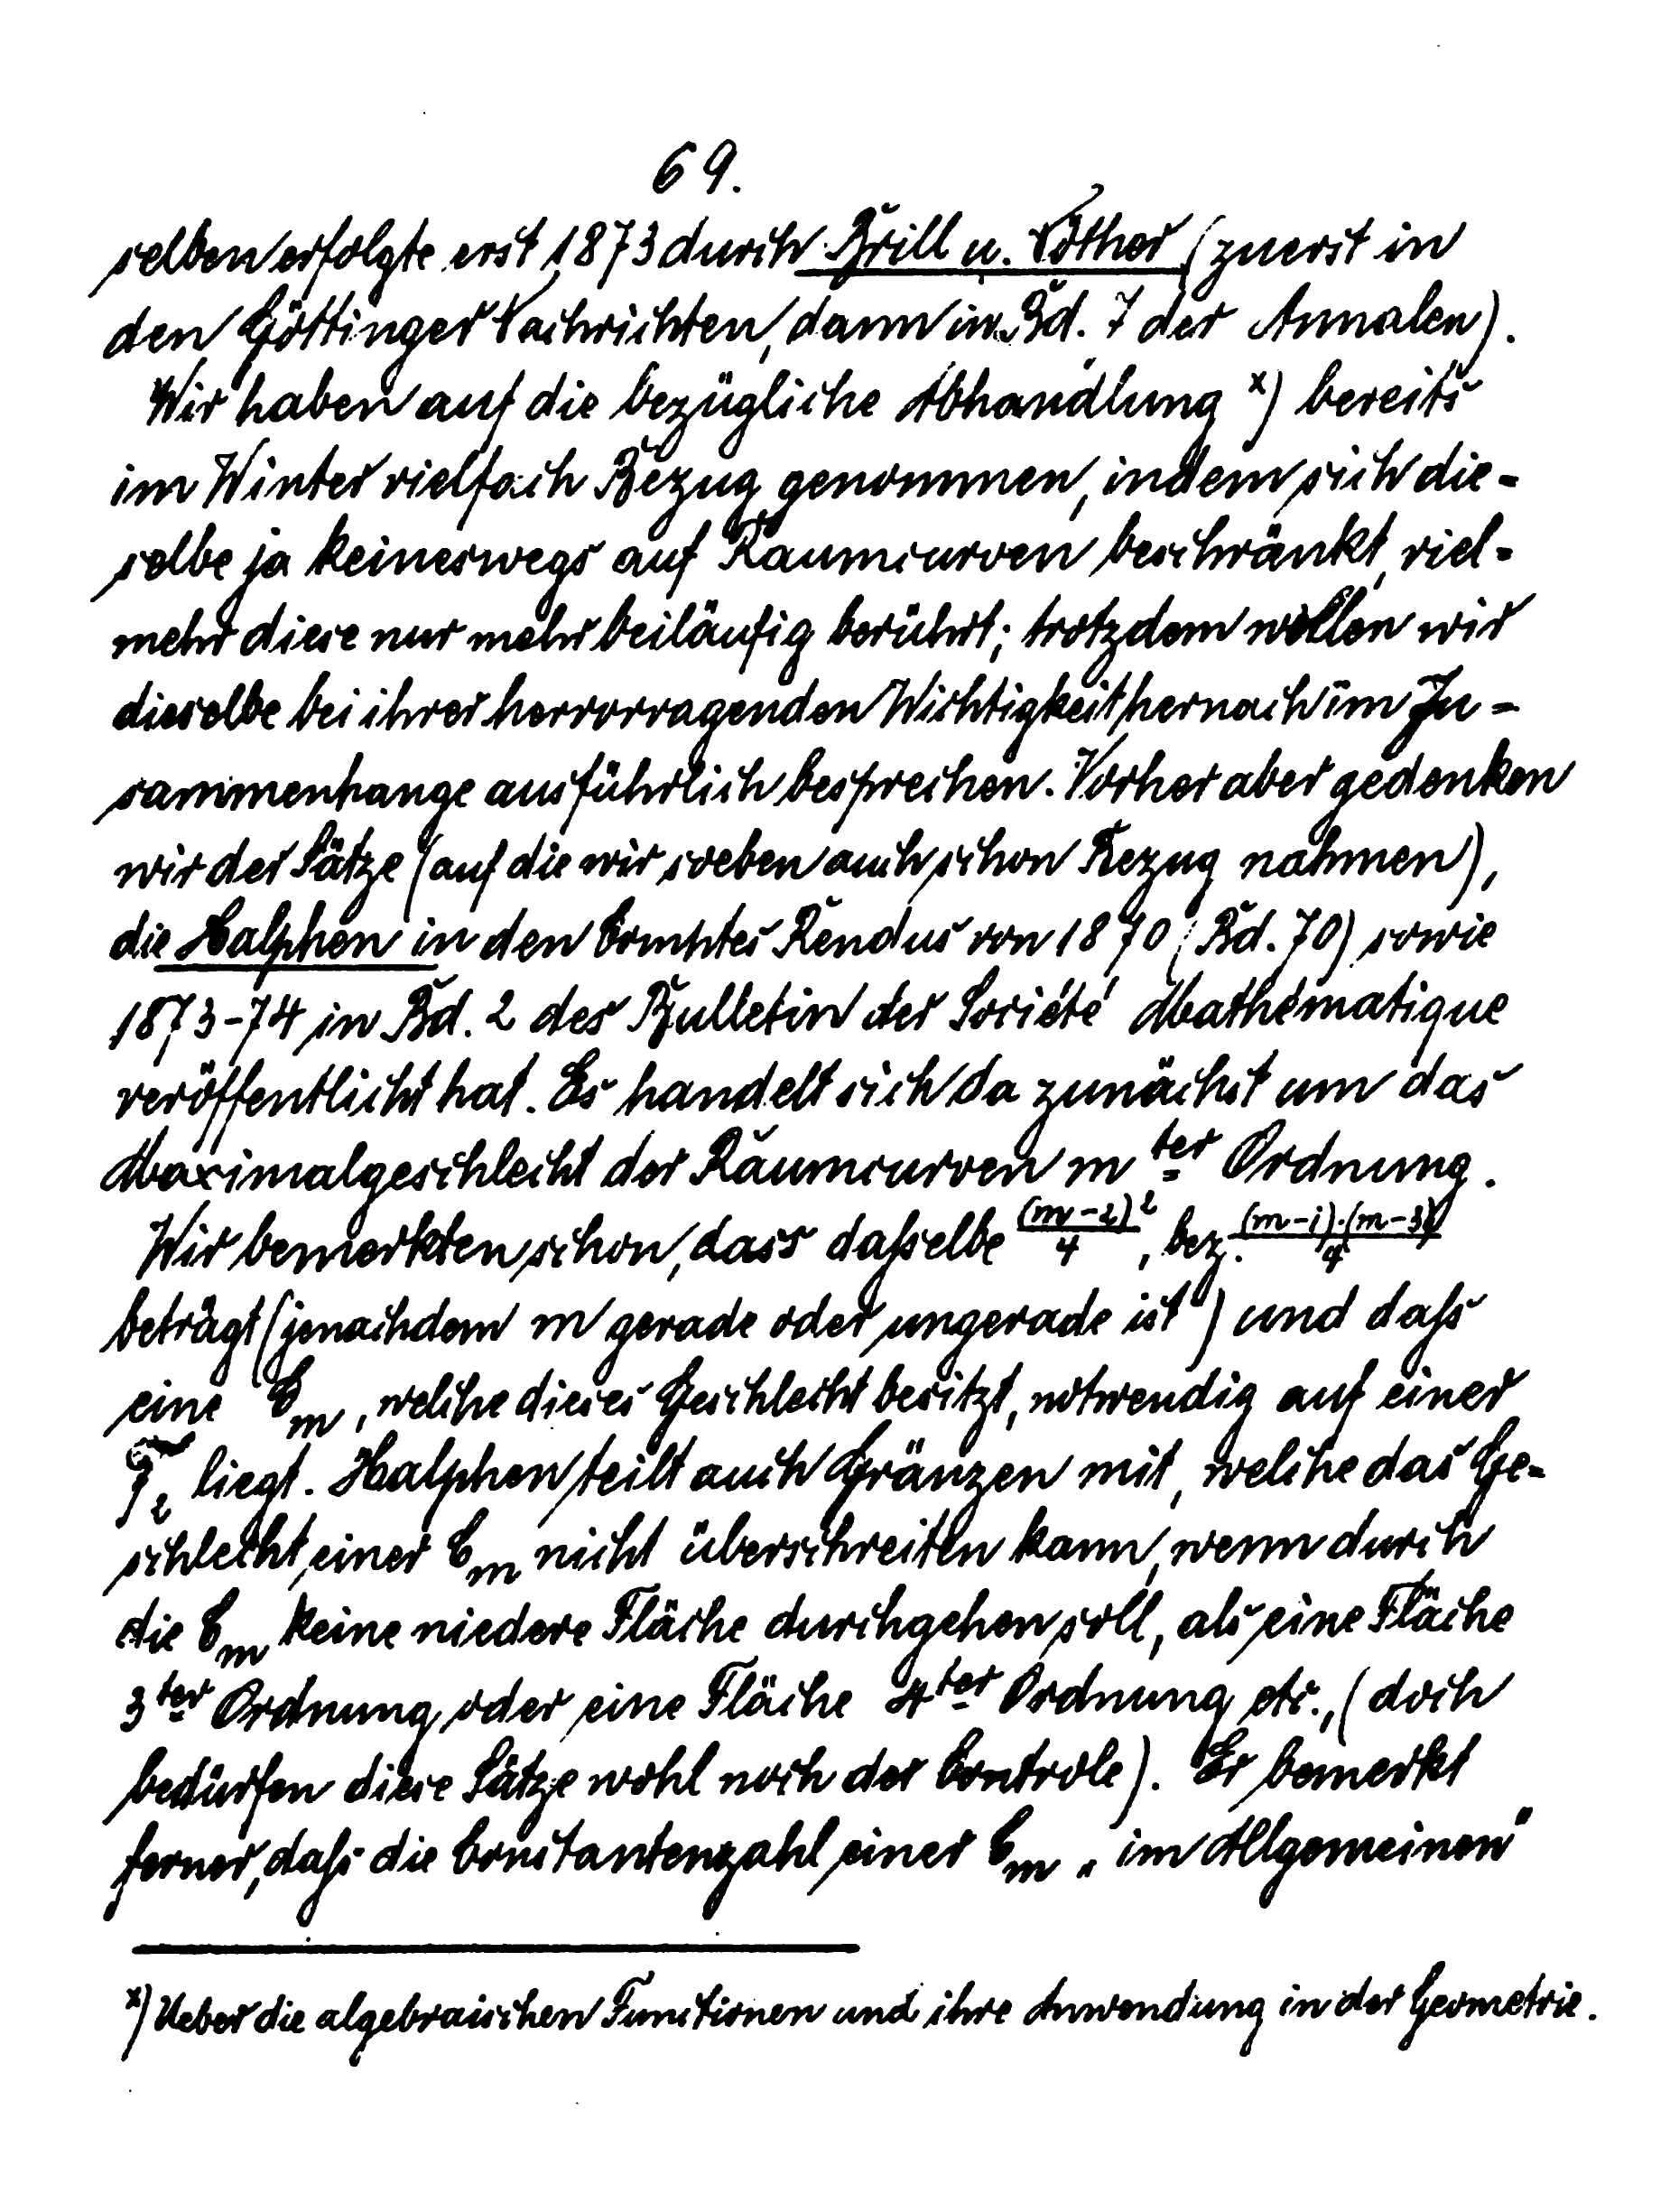 69.
selben erfolgte erst 1873 durch Brill u. Nöther (zuerst in
den Göttinger Nachrichten, dann in Bd. 7 der Annalen).
Wir haben auf die bezügliche Abhandlung x) bereits
im Winter vielfach Bezug genommen, indem sich die-
selbe ja keineswegs auf Raumcurven beschränkt, viel-
mehr diese nur mehr beiläufig berührt; trotzdem wollen wir
dieselbe bei ihrer hervorragenden Wichtigkeit hernach im Zu-
sammenhange ausführlich besprechen. Vorher aber gedenken
wir der Sätze (auf die wir soeben auch schon Bezug nahmen),
die Halphen in den Comptes Rendus von 1870 (Bd. 70) sowie
1873-74 in Bd. 2 des Bulletin der Société Mathématique
veröffentlicht hat. Es handelt sich da zunächst um das
Maximalgeschlecht der Raumcurven m ter Ordnung.
Wir bemerkten schon, dass daſselbe (m-2)²/4, bez. (m-1)·(m-3)/4
beträgt (jenachdem m gerade oder ungerade ist) und daſs
eine C_m, welche dieses Geschlecht besitzt, notwendig auf einer
F_2 liegt. Halphen teilt auch Gränzen mit, welche das Ge-
schlecht einer C_m nicht überschreiten kann, wenn durch
die C_m keine niedere Fläche durchgehen soll, als eine Fläche
3ter Ordnung oder eine Fläche 4ter Ordnung etc., (doch
bedürfen diese Sätze wohl noch der Controle). Er bemerkt
ferner, daſs die Constantenzahl einer C_m „im Allgemeinen"
x) Ueber die algebraischen Functionen und ihre Anwendung in der Geometrie.